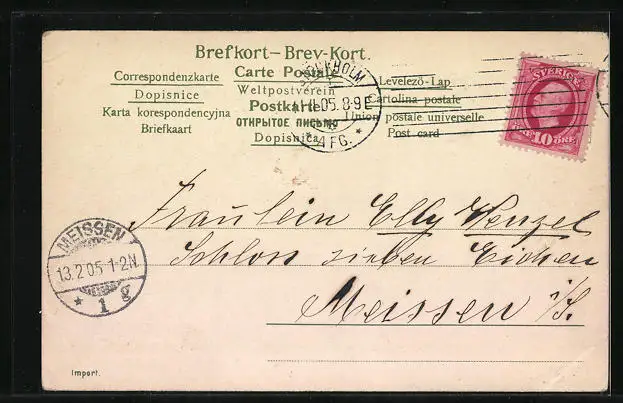 Brefkort – Brev-Kort.
Correspondenzkarte
Carte Postale
Levelező-Lap
Dopisnice
Weltpostverein
Cartolina postale
Karta korespondencyjna
Postkarte
Union postale universelle
Briefkaart
ОТКРЫТОЕ ПИСЬМО
Post card
Dopisnica
STOCKHOLM
11.05.8-9E
AFG.
SVERIGE
10 ÖRE
Fräulein Elly Wenzel
Schloss sieben Eichen
Meissen i/S.
MEISSEN
13.2.05.1-2N.
* 1 g
Import.